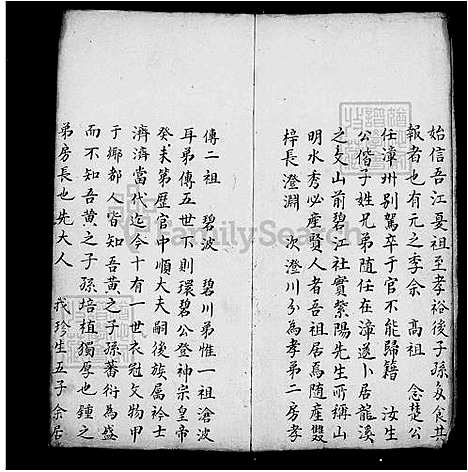 始信吾江夏祖至孝裕後子孫食其
報者也有元之季余　高祖　念楚公
任漳州別駕卒于官不能歸籍　汝生
公偕子姓兄弟隨任在漳遂卜居龍溪
之文山前碧江社實紫陽先生所稱山
明水秀必產賢人者吾祖居焉隨產雙
梓長澄淵　次澄川分為孝第二房孝
傳二祖　碧波　碧川弟惟一祖滄波
耳弟傳五世下則環碧公登神宗皇帝
癸未第歷官中順大夫嗣後族屬衿士
濟濟當代迄今十有一世衣冠文物甲
于鄉都人皆知吾黃之子孫蕃衍為盛
而不知吾黃之子孫培植獨厚也鍾之
弟房長也先大人　我珍生五子余居
FamilySearch